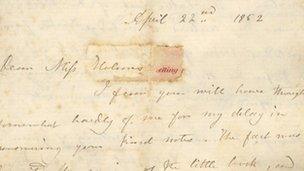 April 22nd 1852
Dear Miss Holmes
etting
I fear you will have thought
hardly of me for my delay in
your kind notes. The fact was
of the little book, and